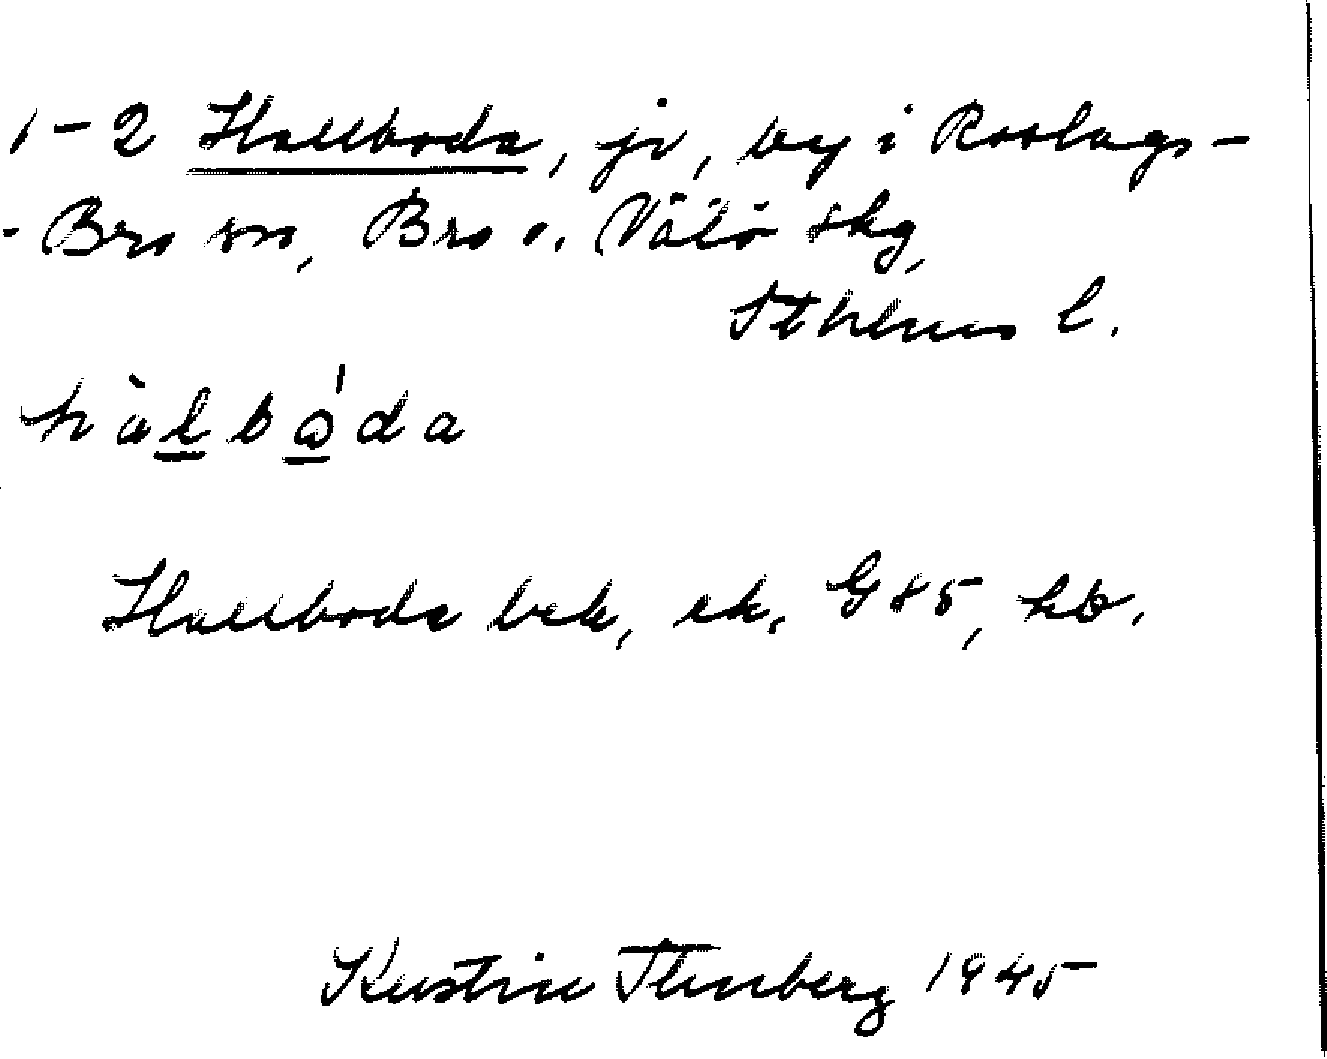 1-2 Hallboda, jr, by i Roslags-
-Bro sn, Bro o. Vätö skg,
Sthlms l.
hàlbǫ́da
Hallboda bek, ek. G85, hb.
Kerstin Flemberg 1945